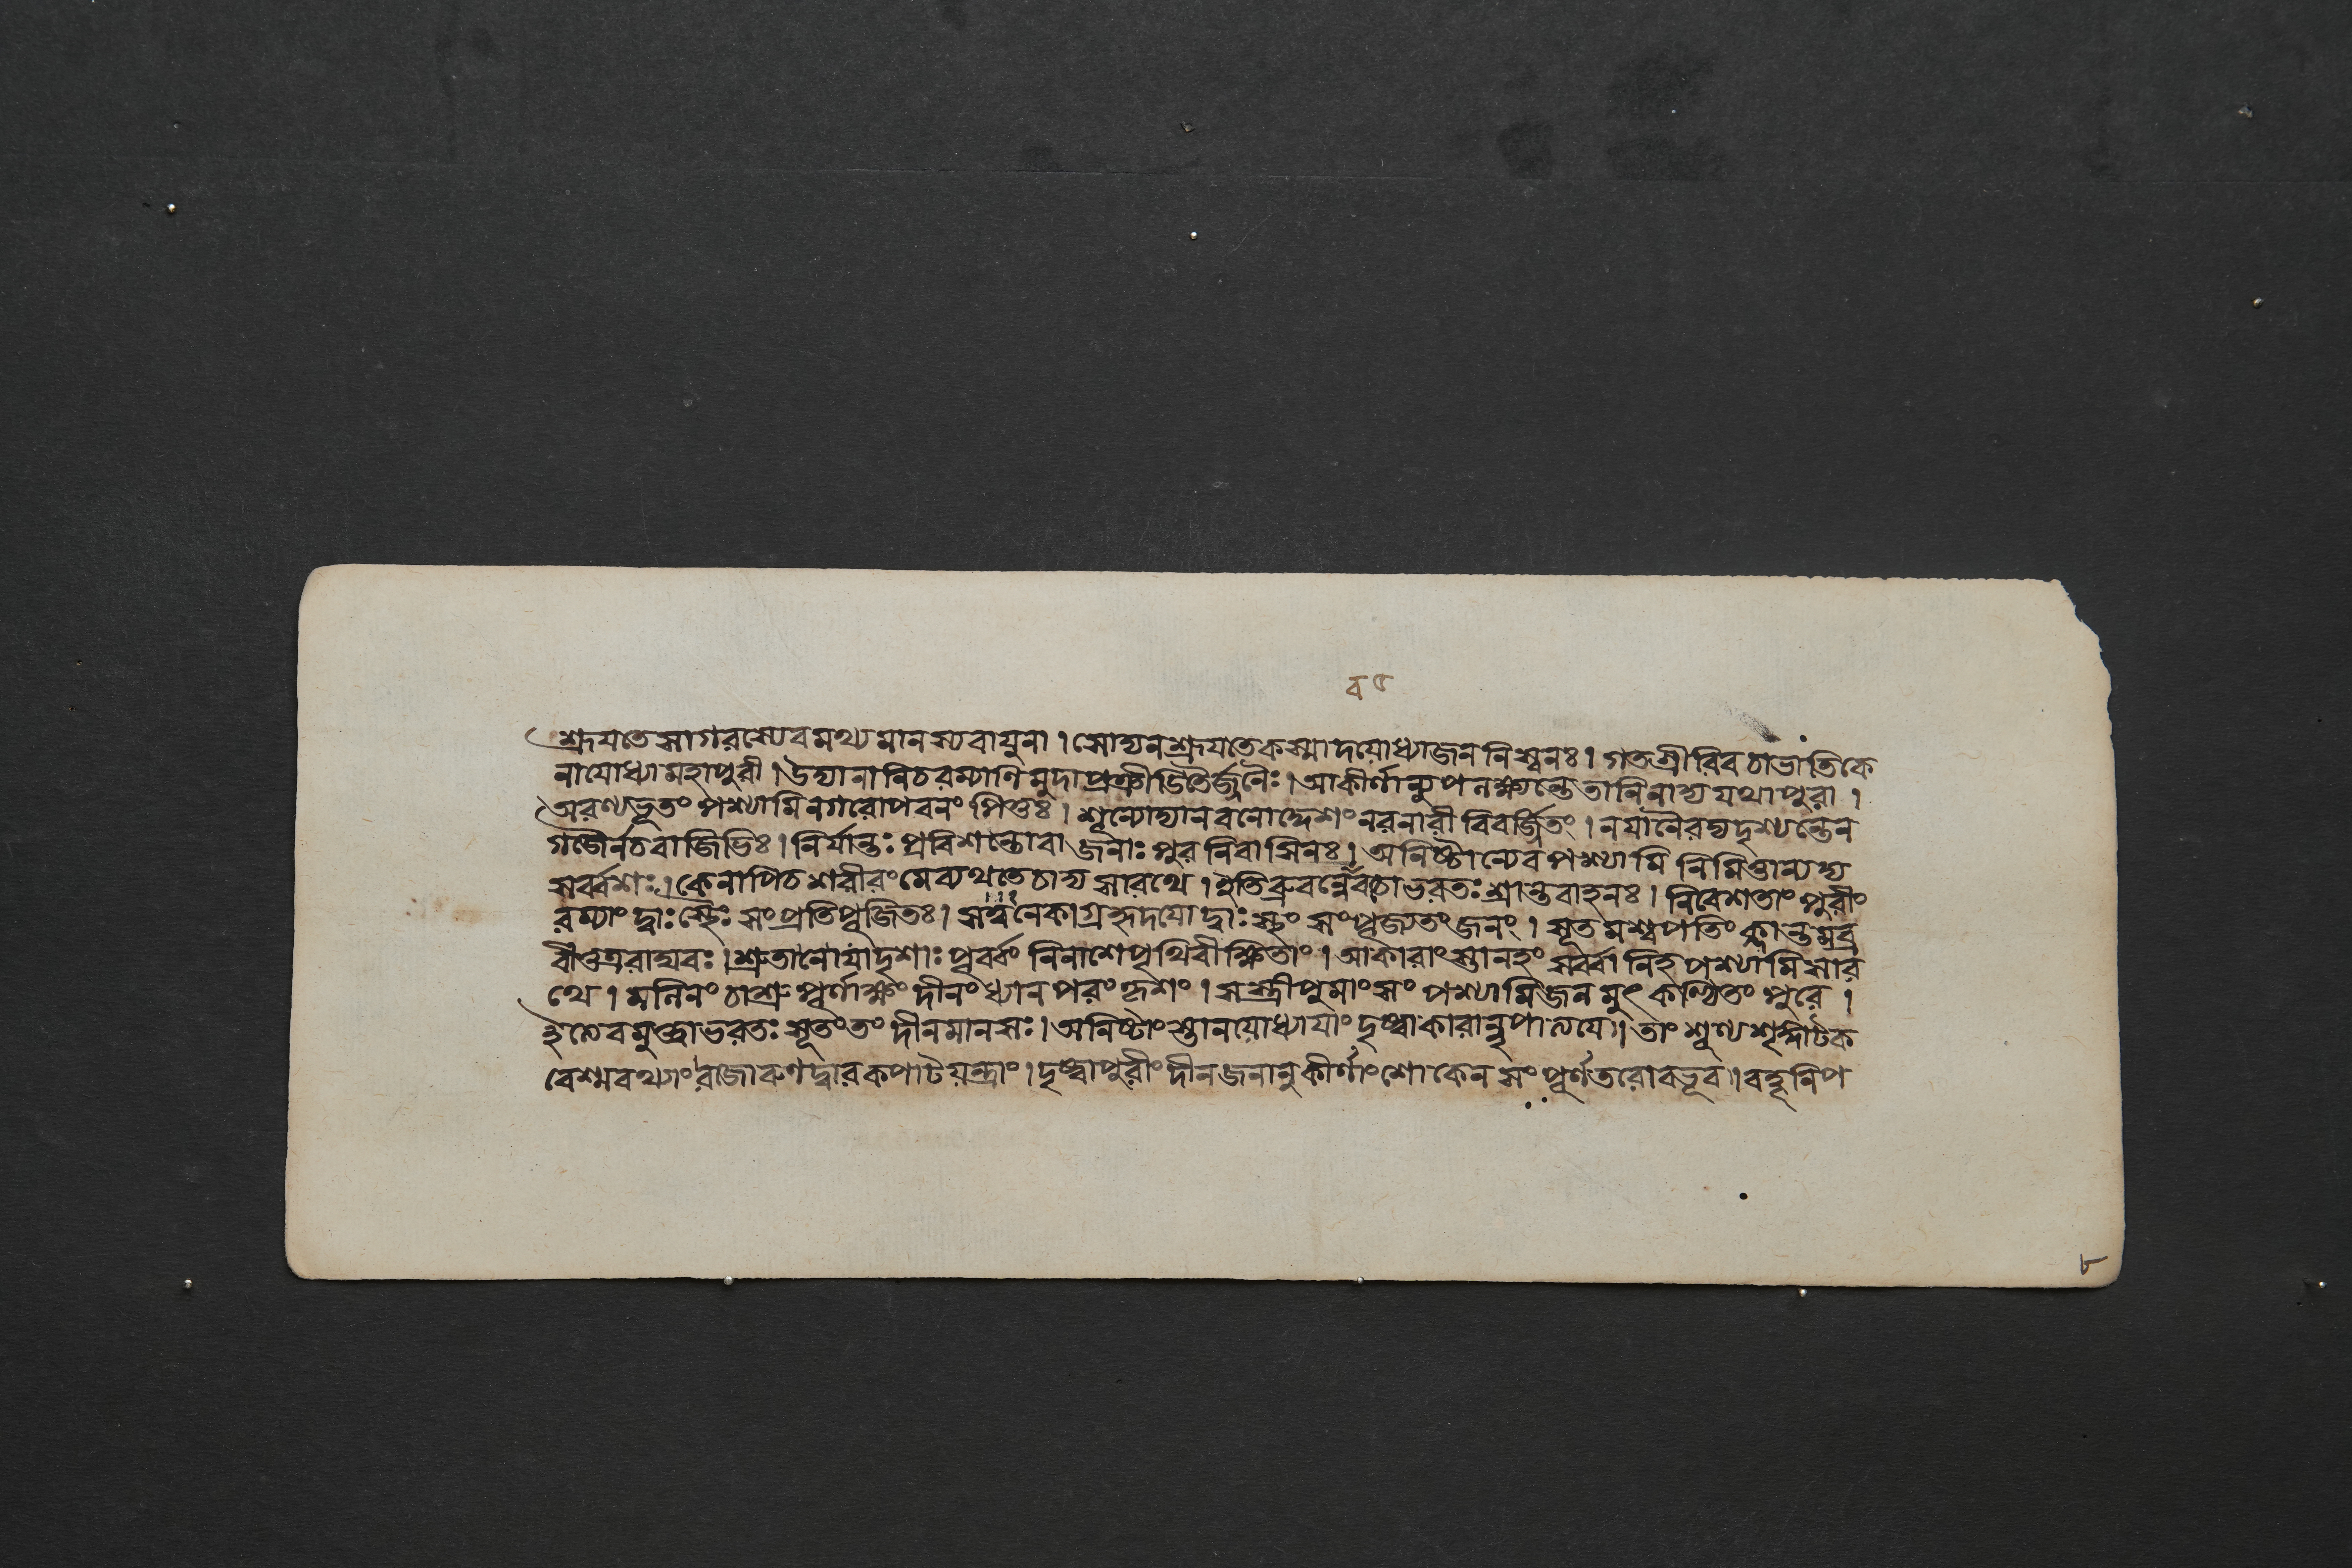 व ८
শ্রূযতেসাগরস্যেবমথ্যমানস্যবাযুনা।সোদ্যনশ্রূযতেকস্মাদযোধ্যাজননিস্বনঃ।গতশ্রীরিবচাভাতিকে
নাযোধ্যামহাপুরী।উদ্যানানিচরম্যাণিমুদাপ্রক্রীডিতৈর্জ্জনৈঃ।আকীর্ণান্যুপলক্ষ্যন্তেতানিনাদ্যযথাপুরা।
অরণ্যভূতংপশ্যামিনগরোপবনংপিতুঃ।শূন্যোদ্যানবনোদ্দেশংনরনারীবিবর্জ্জিতং।নযানৈরদ্যদৃশ্যন্তেন
গজৈর্নচবাজিভিঃ।নির্যান্তঃপ্রবিশন্তোবাজনাঃপুরনিবাসিনঃ।অনিষ্টান্যেবপশ্যামিনিমিত্তান্যদ্য
সর্ব্বশঃ।কেনাপিচশরীরংমেব্যথতেচাদ্যসারথে।ইতিব্রুবন্নেবতোভরতঃশ্রান্তবাহনঃ।নিবেশতাংপুরীং
রম্যাংদ্বাঃস্থৈঃসংপ্রতিপূজিতঃ।সত্বনেকাগ্রহৃদযোদ্বাঃস্থংসংপূজ্যতংজনং।সূতমশ্বপতিংক্লান্তমব্র
বীত্তত্ররাঘবঃ।শ্রুতানোযাদৃশাঃপূর্ব্বংবিনাশেপৃথিবীক্ষিতাং।আকারাংস্তানহংসর্ব্বানিহপশ্যামিসার
থে।মলিনংচাশ্রুপূর্ণাক্ষংদীনংধ্যানপরংকৃশং।সস্ত্রীপুমাংসংপশ্যামিজনমুৎকণ্ঠিতংপুরে।
ইত্যেবমুক্ত্বাভরতঃসূতংতংদীনমানসঃ।অনিষ্টাংস্তানযোধ্যাযাংদৃষ্ট্বাকারান্নৃপালযে।তাংশূণ্যশৃঙ্গাটক
বেশ্মবথ্যাংরজোরুণদ্বারকপাটযন্ত্রাং।দৃষ্ট্বাপুরীংদীনজনানুকীর্ণাংশোকেনসংপূর্ণতরোবভূব।বহূনিপ